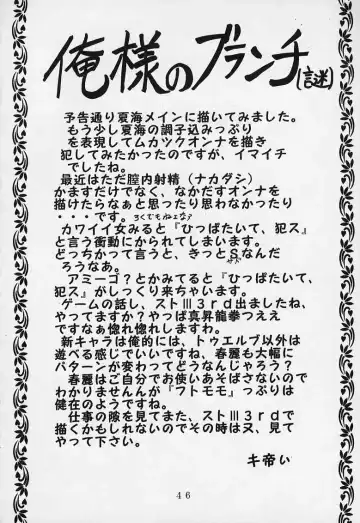 俺様のブランチ(謎)
予告通り夏海メインに描いてみました。
もう少し夏海の調子込みっぷり
を表現してムカツクオンナを描き
犯してみたかったのですが、イマイチ
でしたね。
最近はただ膣内射精(ナカダシ)
かますだけでなく、なかだすオンナを
描けたらなぁと思ったり思わなかったり
・・・です。ろくでもねェなァ
カワイイ女みると『ひっぱたいて、犯ス』
と言う衝動にかられてしまいます。
どっちかって言うと、きっとSなんだ
ろうなあ。
アミーゴ?とかみてると『ひっぱたいて、
犯ス』がしっくり来ちゃいます。
ゲームの話し、ストⅢ3rd出ましたね、
やってますか?やっぱ真昇龍拳つええ
ですなぁ惚れ惚れしますわ。
新キャラは俺的には、トゥエルブ以外は
遊べる感じでいいですね、春麗も大幅に
パターンが変わってどうなんじゃろう?
春麗はご自分でお使いあそばさないので
わかりませんんが『フトモモ』っぷりは
健在のようですね。
仕事の隙を見てまた、ストⅢ3rdで
描くかもしれないのでその時は又、見て
やって下さい。
キ帝ぃ
46